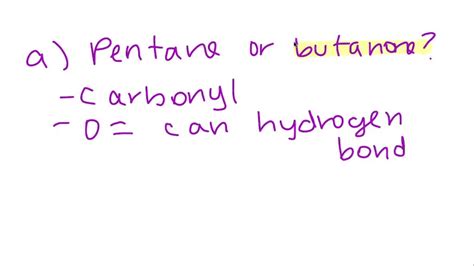 a) Pentane or butanone?
- Carbonyl
- O= can hydrogen
bond